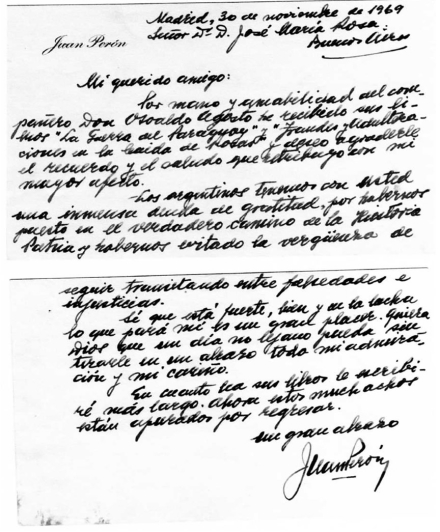 Madrid, 30 de noviembre de 1969
Juan Perón
Señor Dr. D. José María Rosa:
Buenos Aires
Mi querido amigo:
Por mano y amabilidad del com-
pañero Don Osvaldo Agosto he recibido sus li-
bros "La Guerra del Paraguay" y "Fraudes y
ciones en la Caida de Rosas" y deseo agradecerle
el recuerdo y el saludo que retribuyo con mi
mayor afecto.
Los argentinos tenemos con usted
una inmensa deuda de gratitud, por habernos
puesto en el verdadero camino de la Historia
Patria y habernos evitado la vergüenza de
seguir transitando entre falsedades e
injusticias.
Sé que está fuerte, bien y en la lucha
lo que para mí es un gran placer. Quiera
Dios que un día no lejano pueda sin-
tirarle en un abrazo toda mi admira-
ción y mi cariño.
En cuanto lea sus libros le escribi-
ré más largo. Ahora estos muchachos
están apurados por regresar.
un gran abrazo
Juan Perón